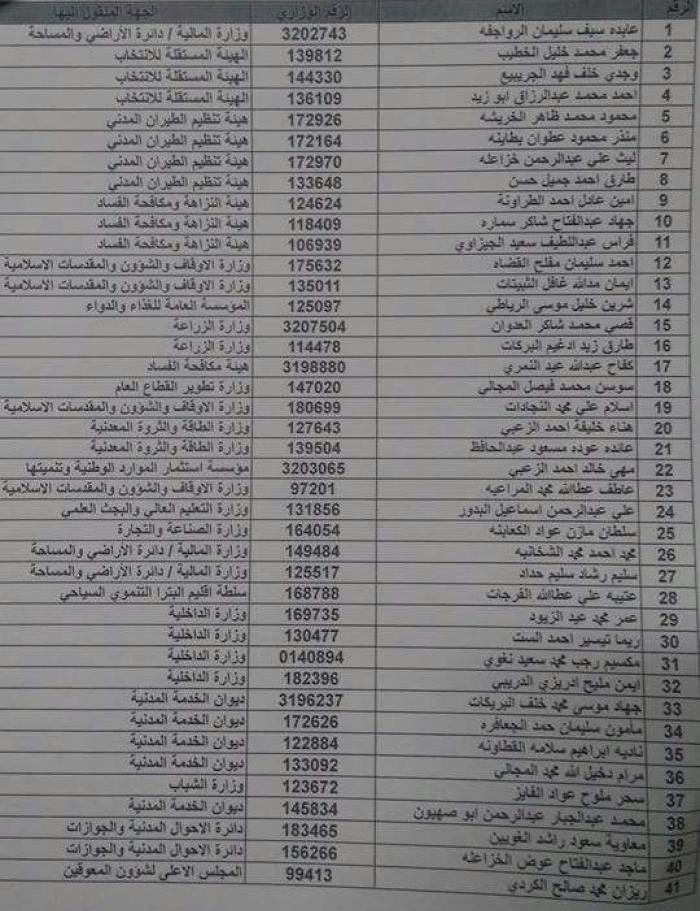 الرقم الاسم الرقم الوزاري الجهة المنقول اليها
1 عابده سيف سليمان الرواجفه 3202743 وزارة المالية / دائرة الأراضي والمساحة
2 جعفر محمد خليل الخطيب 139812 الهيئة المستقلة للانتخاب
3 وجدي خلف فهد الجريبيع 144330 الهيئة المستقلة للانتخاب
4 احمد محمد عبدالرزاق ابو زيد 136109 الهيئة المستقلة للانتخاب
5 محمود محمد ظاهر الخريشه 172926 هيئة تنظيم الطيران المدني
6 منذر محمود عطوان بطاينه 172164 هيئة تنظيم الطيران المدني
7 ليث علي عبدالرحمن خزاعله 172970 هيئة تنظيم الطيران المدني
8 طارق احمد جميل حسن 133648 هيئة تنظيم الطيران المدني
9 امين عادل احمد الطراونة 124624 هيئة النزاهة ومكافحة الفساد
10 جهاد عبدالفتاح شاكر سماره 118409 هيئة النزاهة ومكافحة الفساد
11 فراس عبداللطيف سعيد الجيزاوي 106939 هيئة النزاهة ومكافحة الفساد
12 احمد سليمان مفلح القضاه 175632 وزارة الاوقاف والشؤون والمقدسات الاسلامية
13 ايمان مدالله غافل الثبيتات 135011 وزارة الاوقاف والشؤون والمقدسات الاسلامية
14 شرين خليل موسى الرياطي 125097 المؤسسة العامة للغذاء والدواء
15 قصي محمد شاكر العدوان 3207504 وزارة الزراعة
16 طارق زيد ادغيم البركات 114478 وزارة الزراعة
17 كفاح عبدالله عيد النمري 3198880 هيئة مكافحة الفساد
18 سوسن محمد فيصل المجالي 147020 وزارة تطوير القطاع العام
19 اسلام علي محمد النجادات 180699 وزارة الاوقاف والشؤون والمقدسات الاسلامية
20 هناء خليفة احمد الزعبي 127643 وزارة الطاقة والثروة المعدنية
21 عائده عوده مسعود عبدالحافظ 139504 وزارة الطاقة والثروة المعدنية
22 مهى خالد احمد الزعبي 3203065 مؤسسة استثمار الموارد الوطنية وتنميتها
23 عاطف عطاالله محمد المراعيه 97201 وزارة الاوقاف والشؤون والمقدسات الاسلامية
24 علي عبدالرحمن اسماعيل البدور 131856 وزارة التعليم العالي والبحث العلمي
25 سلطان مازن عواد الكعابنه 164054 وزارة الصناعة والتجارة
26 محمد احمد محمد الشخانبه 149484 وزارة المالية / دائرة الأراضي والمساحة
27 سليم رشاد سليم حداد 125517 وزارة المالية / دائرة الأراضي والمساحة
28 عتيبه علي عطاالله الفرجات 168788 سلطة اقليم البترا التنموي السياحي
29 عمر محمد عيد الزيود 169735 وزارة الداخلية
30 ريما تيسير احمد الست 130477 وزارة الداخلية
31 مكسيم رجب محمد سعيد نغوي 0140894 وزارة الداخلية
32 ايمن مليح ادريزي الدريبي 182396 وزارة الداخلية
33 جهاد موسى محمد خلف البريكات 3196237 ديوان الخدمة المدنية
34 مأمون سليمان حمد الجعافره 172626 ديوان الخدمة المدنية
35 ناديه ابراهيم سلامه القطاونه 122884 ديوان الخدمة المدنية
36 مرام دخيل الله محمد المجالي 133092 ديوان الخدمة المدنية
37 سحر ملوح عواد الفايز 123672 وزارة الشباب
38 محمد عبدالجبار عبدالرحمن ابو صهيون 145834 ديوان الخدمة المدنية
39 معاوية سعود راشد الغويين 183465 دائرة الاحوال المدنية والجوازات
40 ماجد عبدالفتاح عوض الخزاعله 156266 دائرة الاحوال المدنية والجوازات
41 ريزان محمد صالح الكردي 99413 المجلس الاعلى لشؤون المعوقين